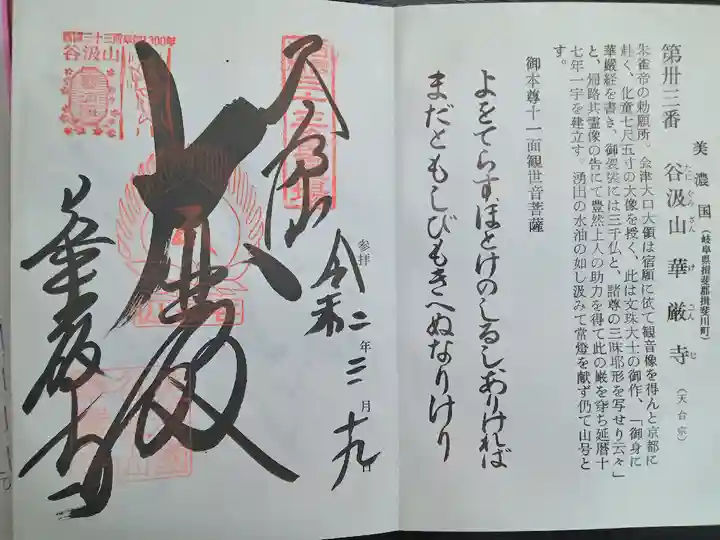 第卅三番
美濃国(岐阜県揖斐郡揖斐川町)
谷汲山華厳寺(天台宗)
たにぐみざん けごんじ
朱雀帝の勅願所。会津大口大領は宿願に依て観音像を得んと京都に
赴く、化童七尺五寸の大像を授く、此は文珠大士の御作、「御身に
華厳経を書き、御袈裟には三千仏と、諸尊の三昧耶形を写せり云々」
と、帰路共霊像の告にて豊然上人の助力を得て此の巌を穿ち延暦十
七年一宇を建立す。湧出の水油の如し汲みて常燈を献ず仍て山号と
す。
御本尊十一面観世音菩薩
よをてらすほとけのしるしありければ
まだともしびもきへぬなりけり
参拝
令和二年三月十九日
西国三十三所草創1300年
谷汲山
華厳寺